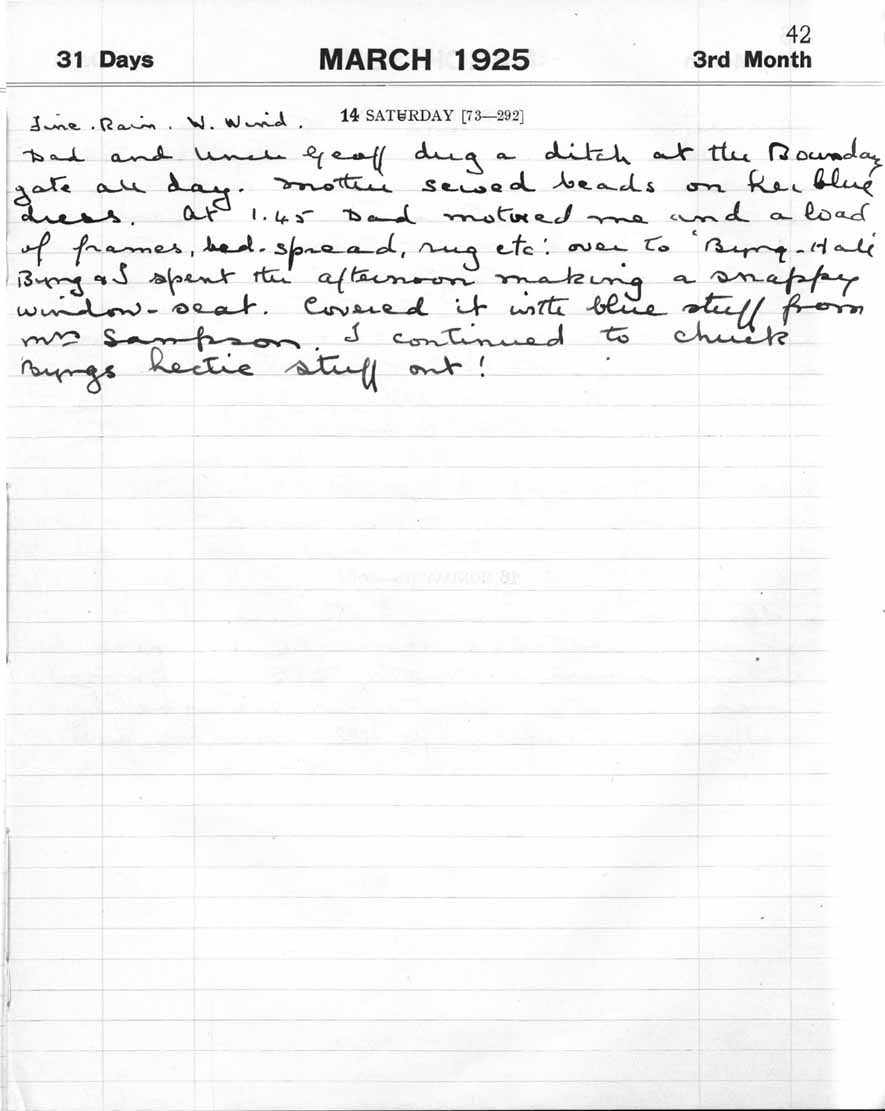 42
31 Days MARCH 1925 3rd Month
14 SATURDAY [73—292]
Fine. Rain. W. Wind.
Dad and Uncle Geoff dug a ditch at the Bounday
gate all day. Mother sewed beads on her blue
dress. At 1.45 Dad motored me and a load
of frames, bed-spread, rug etc: over to 'Byng-Hall'
Byng & I spent the afternoon making a snappy
window-seat. Covered it with blue stuff from
Mrs Sampson. I continued to chuck
Byngs hectic stuff out!